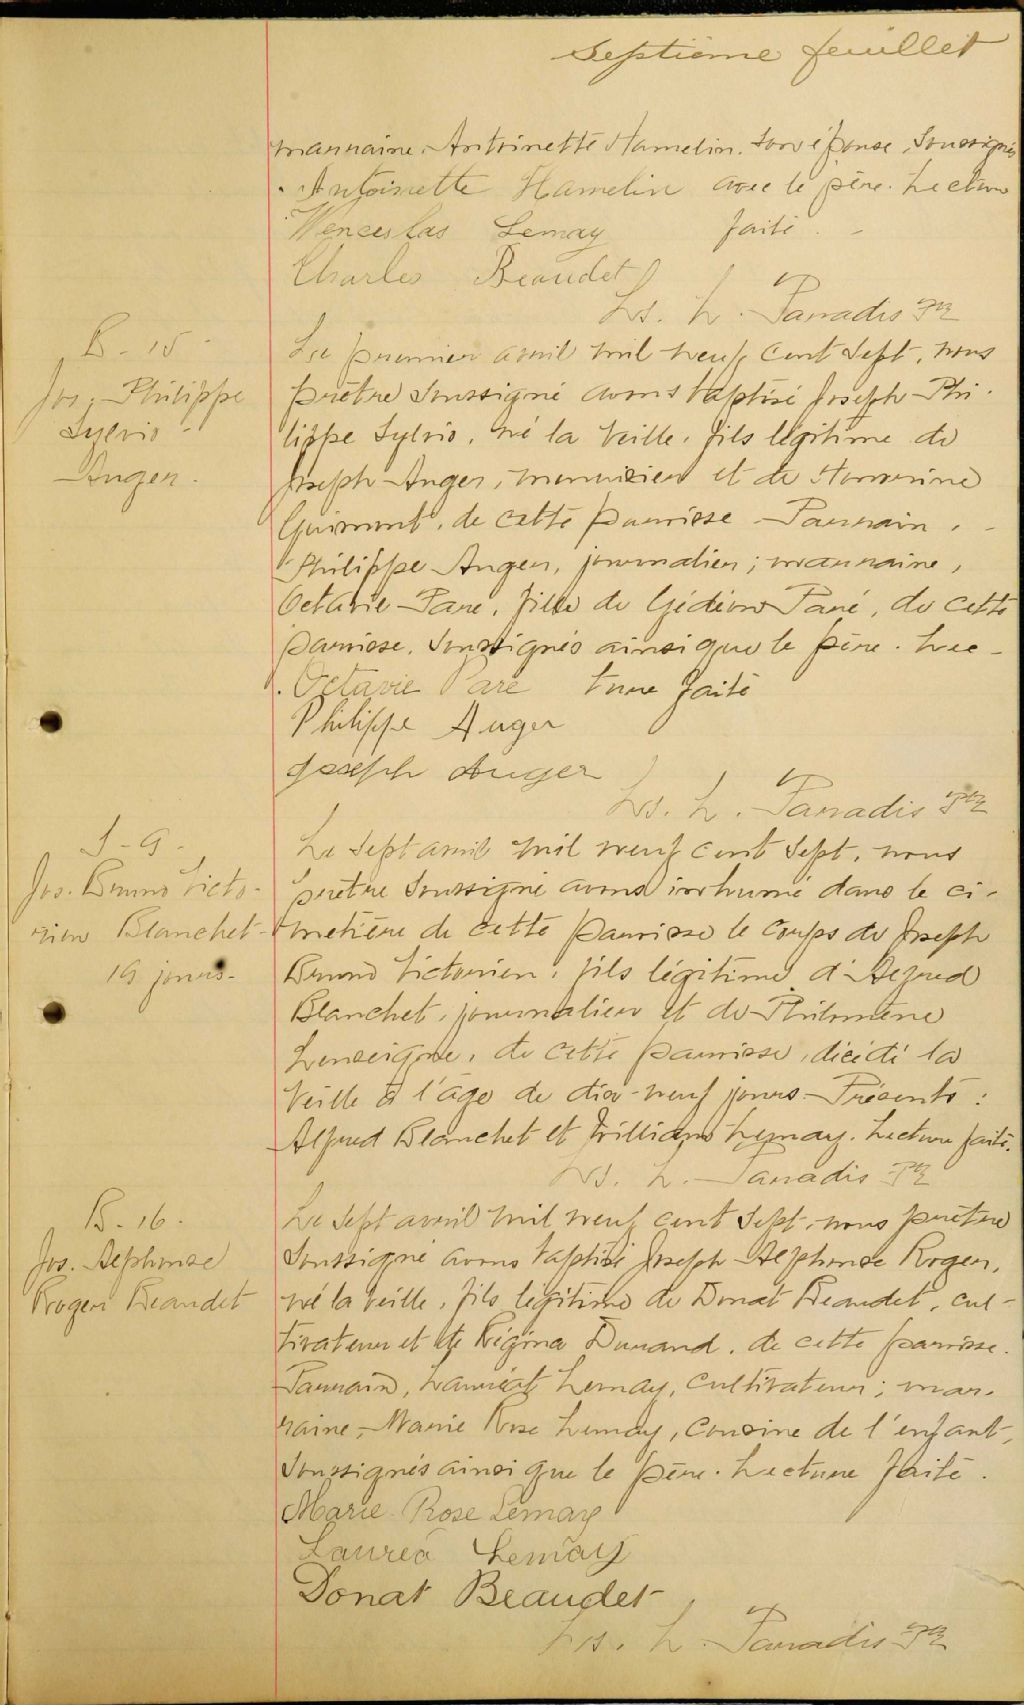 Septième feuillet
marraine, Antoinette Hamelin son épouse, Soussignés
Antoinette Hamelin avec le père. Lecture
Wenceslas Lemay faite.
Charles Beaudet
Ls. L. Paradis Ptr
B-15-
Jos. Philippe
Sylvio
Auger.
Le premier avril mil neuf cent sept, nous
prêtre soussigné avons baptisé Joseph Phi-
lippe Sylvio, né la veille, fils légitime de
Joseph Auger, menuisier et de Honorine
Guimont, de cette paroisse - Parrain,
Philippe Auger, journalier; marraine,
Octavie Paré, fille de Gédéon Paré, de cette
paroisse, soussignés ainsi que le père. Lec-
Octavie Paré ture faite
Philippe Auger
Joseph Auger
Ls. L. Paradis Ptr
S-9-
Jos. Bruno Victo-
rien Blanchet-
19 jours-
Le sept avril mil neuf cent sept, nous
prêtre soussigné avons inhumé dans le ci-
metière de cette paroisse le corps de Joseph
Bruno Victorien, fils légitime d'Alfred
Blanchet, journalier et de Philomène
Lenseigne, de cette paroisse, décédé la
veille à l'âge de dix-neuf jours - Présents:
Alfred Blanchet et William Lemay. Lecture faite.
Ls. L. Paradis Ptr
B-16-
Jos. Alphonse
Roger Beaudet
Le sept avril mil neuf cent sept, nous prêtre
soussigné avons baptisé Joseph Alphonse Roger,
né la veille, fils légitime de Donat Beaudet, cul-
tivateur et de Régina Durand, de cette paroisse.
Parrain, Lauréat Lemay, cultivateur; mar-
raine, Marie Rose Lemay, cousine de l'enfant,
soussignés ainsi que le père. Lecture faite.
Marie Rose Lemay
Lauréa Lemay
Donat Beaudet
Ls. L. Paradis Ptr